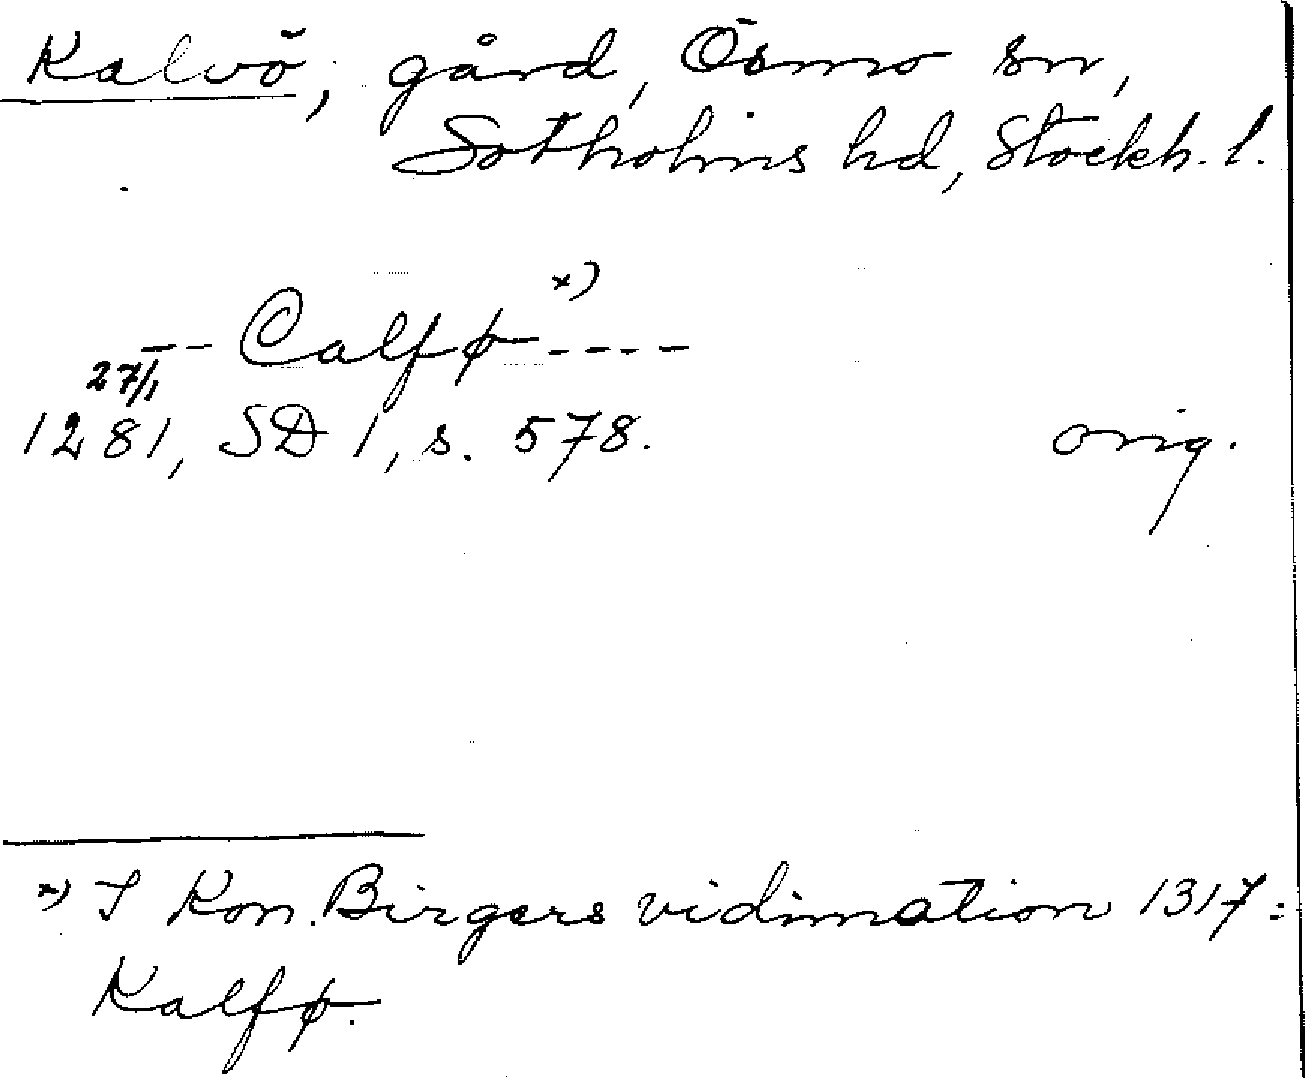 Kalvö, gård, Ösmo sn,
Sotholms hd, Stockh. l.
-- Calfø x) ----
27/1
1281, SD 1, s. 578. orig.
x) I Kon. Birgers vidimation 1317:
Kalfø.